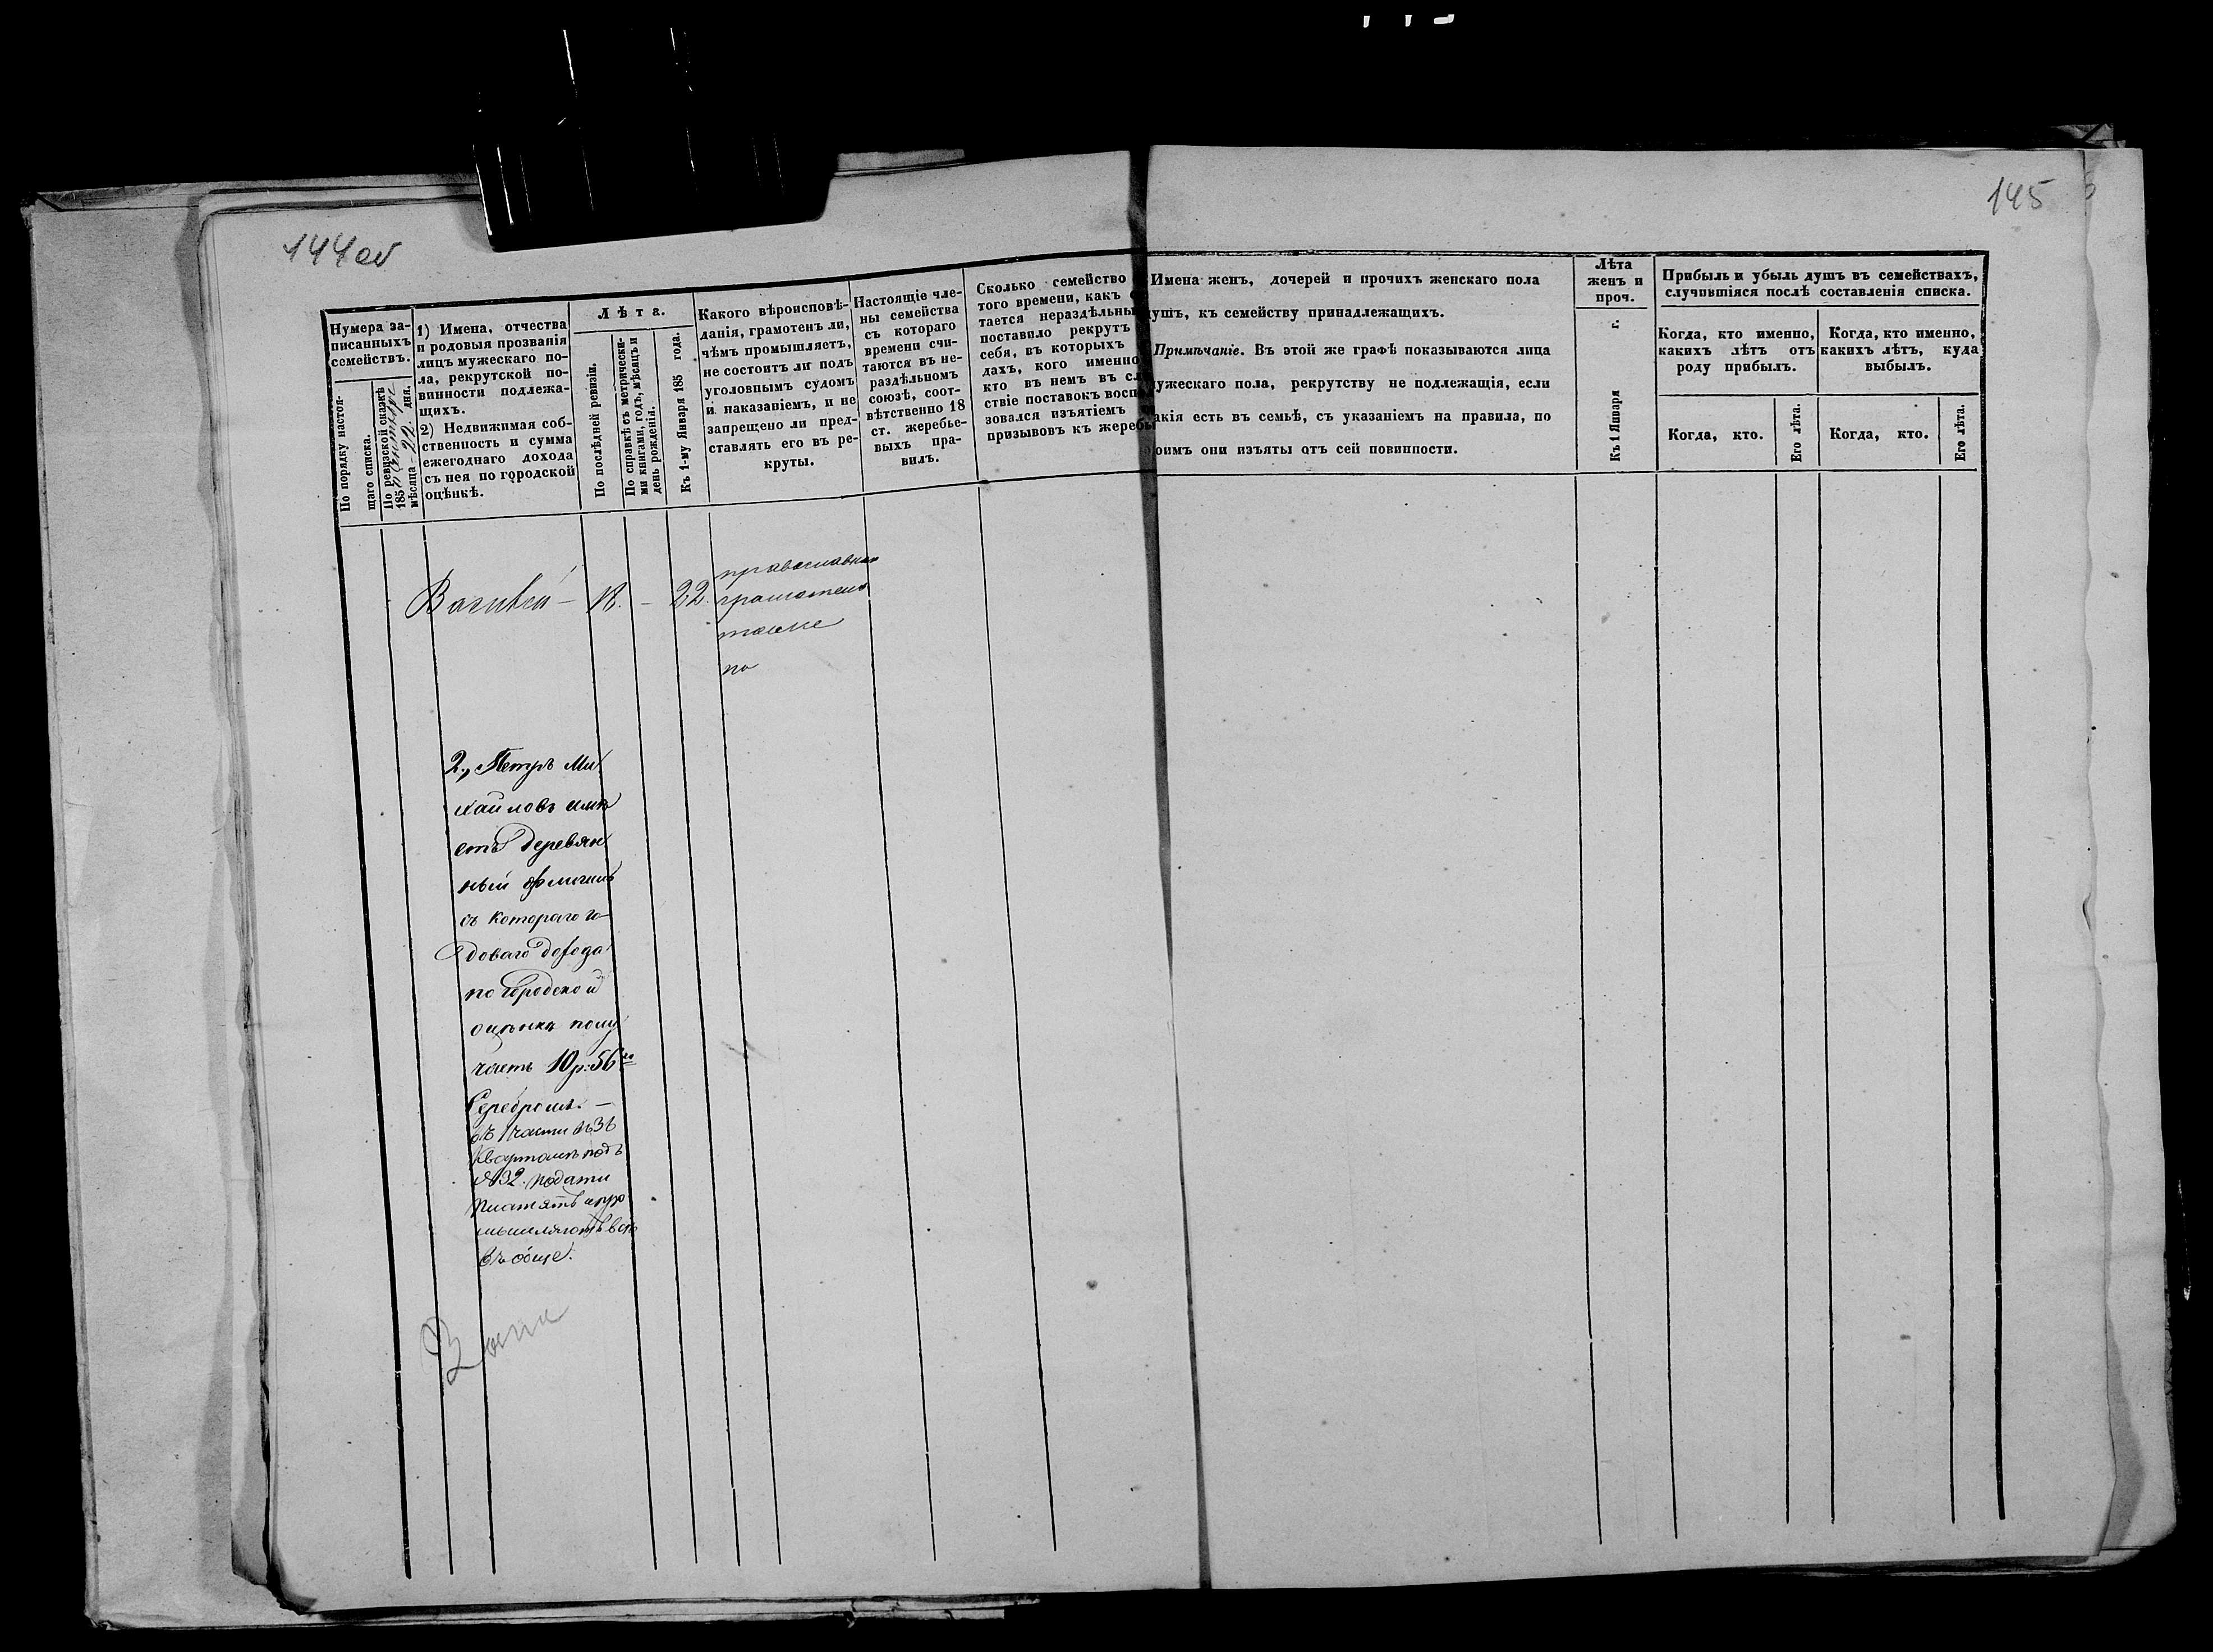 144 об
145
Нумера за-
писанныхъ
семействъ.
По порядку настоя-
щаго списка.
По ревизской сказкѣ
185
мѣсяца 22. дня.
1) Имена, отчества
и родовыя прозванія
лицъ мужескаго по-
ла, рекрутской по-
винности подлежа-
щихъ.
2) Недвижимая соб-
ственность и сумма
ежегоднаго дохода
съ нея по городской
оцѣнкѣ.
Лѣта.
По послѣдней ревизіи.
По справкѣ съ метрически-
ми книгами, годъ, мѣсяцъ и
день рожденія.
Къ 1-му Января 185 года.
Какого вѣроисповѣ-
данія, грамотенъ ли,
чѣмъ промышляетъ,
не состоитъ ли подъ
уголовнымъ судомъ
и наказаніемъ, и не
запрещено ли пред-
ставлять его въ ре-
круты.
Настоящіе чле-
ны семейства
съ котораго
времени счи-
таются въ не-
раздѣльномъ
союзѣ, соот-
вѣтственно 18
ст. жеребье-
выхъ пра-
вилъ.
Сколько семейство
того времени, какъ
тается нераздѣльны
поставило рекрутъ
себя, въ которыхъ
дахъ, кого именно
кто въ немъ въ сл
ствіе поставокъ восп
зовался изъятіемъ
призывовъ къ жеребь
Имена женъ, дочерей и прочихъ женскаго пола
душъ, къ семейству принадлежащихъ.
Примѣчаніе. Въ этой же графѣ показываются лица
мужескаго пола, рекрутству не подлежащія, если
акія есть въ семьѣ, съ указаніемъ на правила, по
коимъ они изъяты отъ сей повинности.
Лѣта
женъ и
проч.
Къ 1 Января г.
Прибыль и убыль душъ въ семействахъ,
случившіяся послѣ составленія списка.
Когда, кто именно,
какихъ лѣтъ отъ
роду прибылъ.
Когда, кто.
Его лѣта.
Когда, кто именно,
какихъ лѣтъ, куда
выбылъ.
Когда, кто.
Его лѣта.
Василей — 18. — 22. православнаго
грамотенъ
тоже
по
2., Петръ Ми
хайловъ имѣ
етъ деревян
ный флигель
съ котораго го-
доваго дохода
по городской
оцѣнкѣ полу
чаетъ 10 р: 56 ко
Серебромъ. —
въ 1 части въ 3 в
Кварталѣ подъ
№ 32. подати
платятъ и про
мышляютъ всѣ
въ обще.